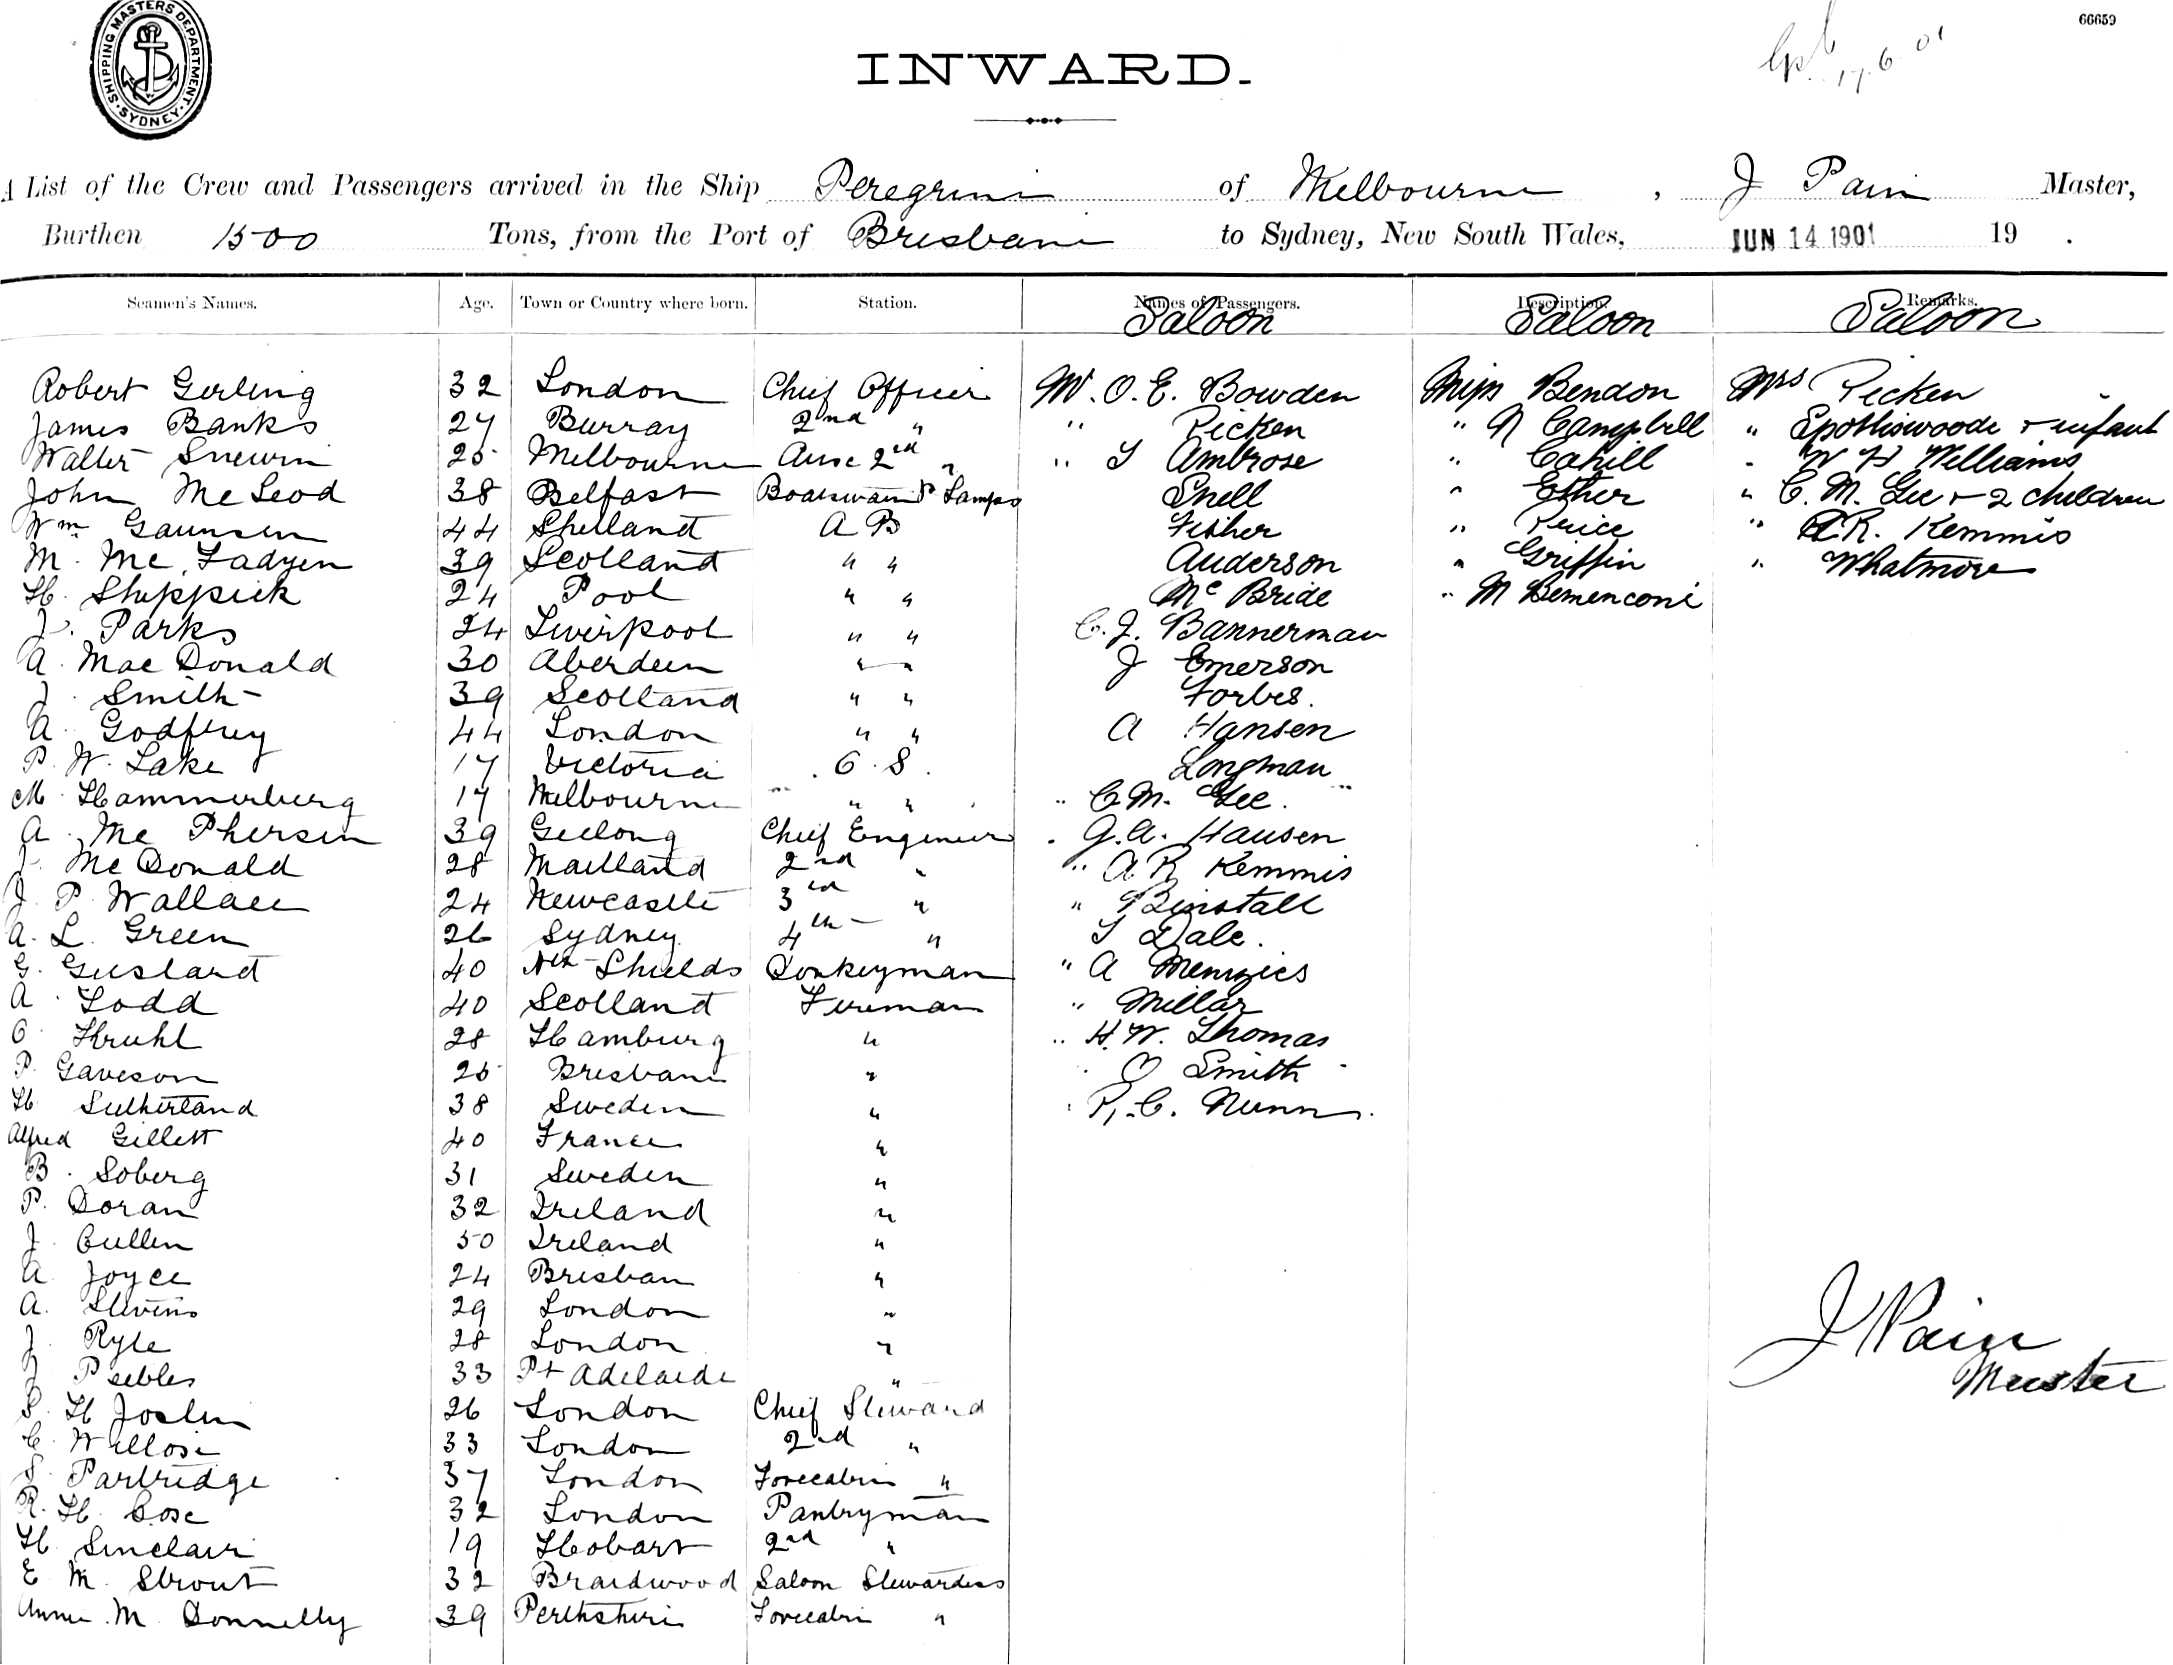 SHIPPING MASTERS DEPARTMENT · SYDNEY ·
66659
17 6 01
INWARD.
A List of the Crew and Passengers arrived in the Ship Peregrine of Melbourne, J Pain Master,
Burthen 1500 Tons, from the Port of Brisbane to Sydney, New South Wales, JUN 14 1901 19 .
Seamen's Names. Age. Town or Country where born. Station. Names of Passengers. Description. Remarks.
Saloon Saloon Saloon
Robert Gerling 32 London Chief Officer Mr. O. E. Bowden Miss Bendon Mrs Picken
James Banks 27 Burray 2nd " " Picken " N Campbell " Spottiswoode & infant
Walter Snewin 25 Melbourne 2nd " " S Ambrose " Cahill " W H Williams
John McLeod 38 Belfast Boatswain & Lamps Snell " Esther " C. M. Gee & 2 children
Wm Gaunsen 44 Shetland A B Fisher " Price " A R. Kemmis
M. Mc Fadyen 39 Scotland " " Anderson " Griffin " Whatmore
H. Sheppick 24 Pool " " Mc Bride " M Bemenconi
J. Parks 24 Liverpool " " C. J. Bannerman
A. Mac Donald 30 Aberdeen " " J Emerson
J. Smith 39 Scotland " " Forbes.
A. Godfrey 44 London " " A Hansen
P. W. Lake 17 Victoria O. S. Longman
M. Hammerberg 17 Melbourne " " " C M. Gee.
A. Mc Phersen 39 Geelong Chief Engineer " G. A. Hansen
J. Mc Donald 28 Maitland 2nd " " A R Kemmis
J. P. Wallace 24 Newcastle 3rd " " Binstall
A. L. Green 26 Sydney 4th " S Dale.
G. Gusland 40 Nth Shields Donkeyman " A Menzies
A. Todd 40 Scotland Fireman " Millar
O. Kruhl 28 Hamburg " " H. W. Thomas
P. Gaveson 25 Brisbane " O Smith
H Sutherland 38 Sweden " R. C. Nunn.
Alfred Gillett 40 France "
B. Soberg 31 Sweden "
P. Doran 32 Ireland "
J. Cullen 50 Ireland "
A. Joyce 24 Brisban "
A. Stevens 29 London "
J. Ryle 28 London "
J Peebles 33 Pt Adelaide "
J Pain
Master
S. H Joslin 26 London Chief Steward
C. Willose 33 London 2nd "
S. Partridge 37 London Forecabin "
R. H. Cose 32 London Pantryman
H. Sinclair 19 Hobart 2nd "
E M. Strout 32 Braidwood Saloon Stewardess
Annie. M. Donnelly 39 Perthshire Forecabin "